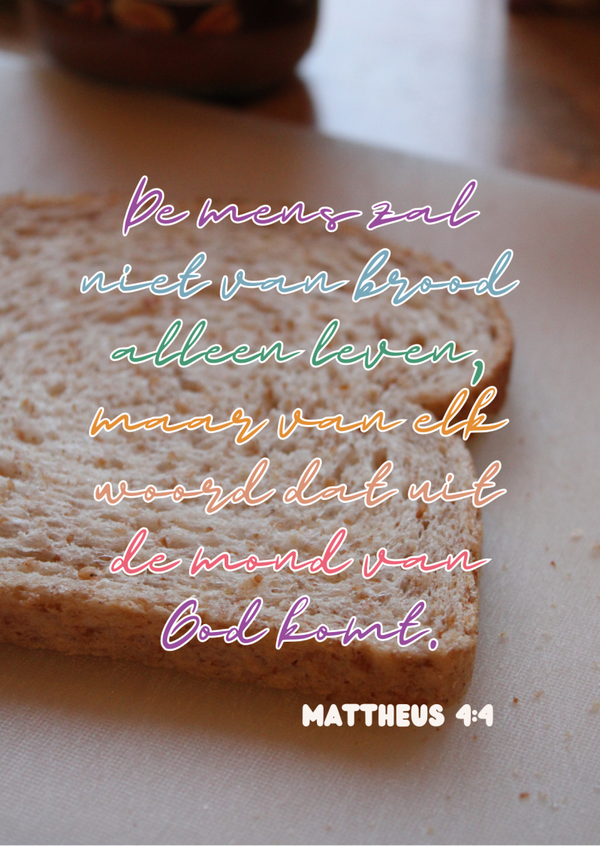 De mens zal
niet van brood
alleen leven,
maar van elk
woord dat uit
de mond van
God komt.
MATTHEUS 4:4